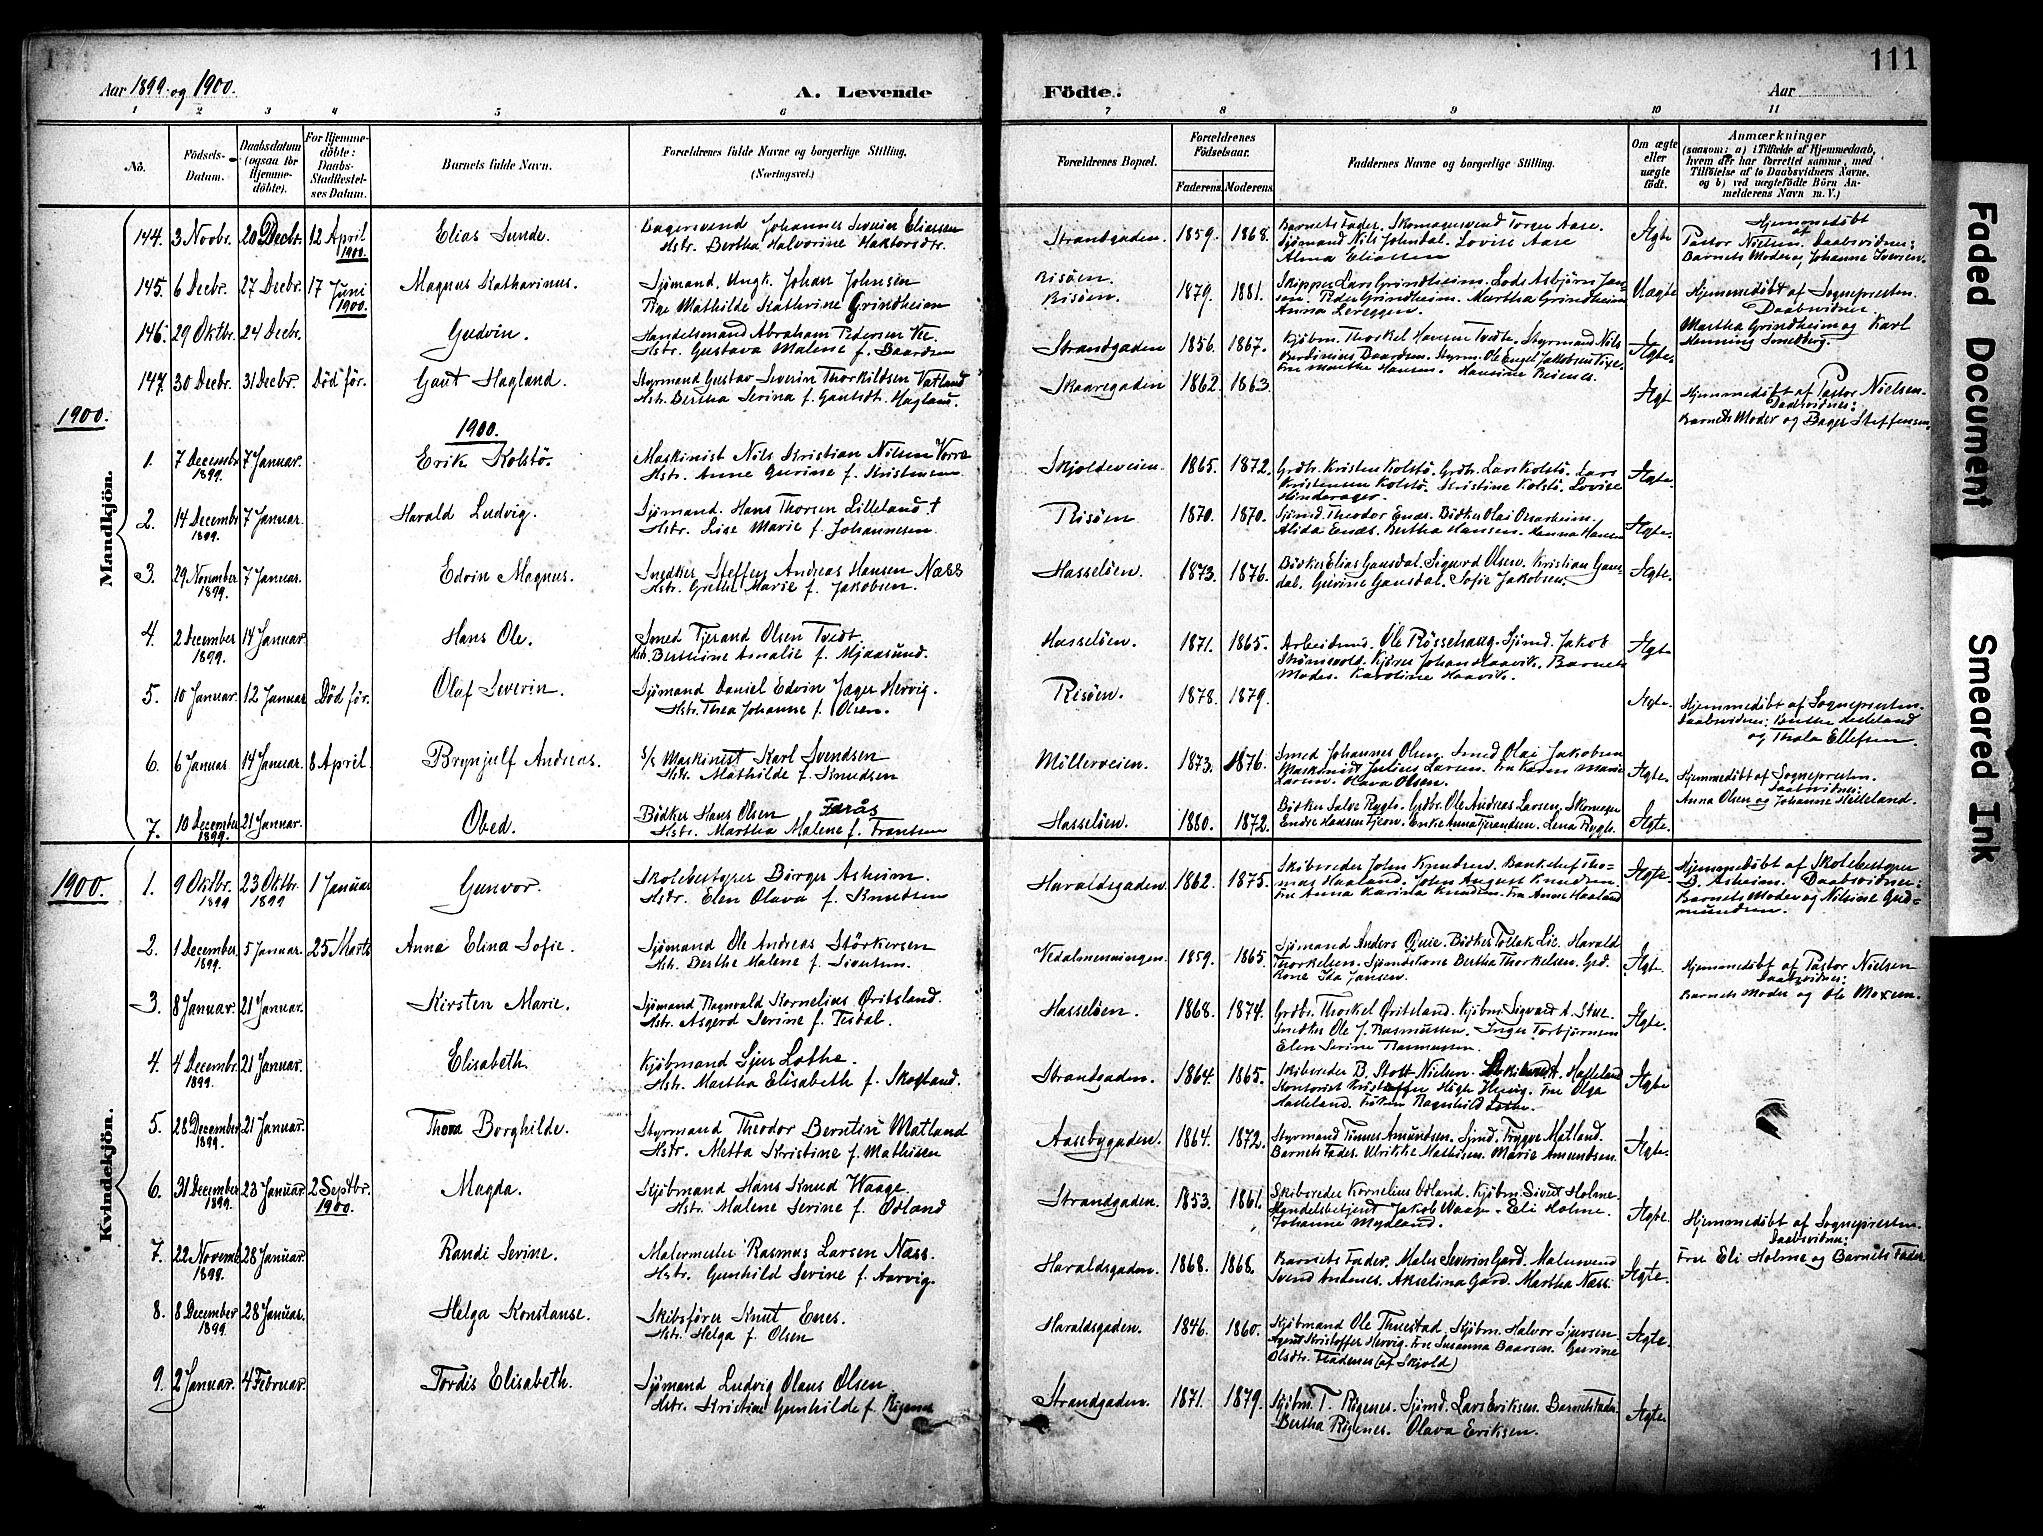 111
Aar 1899 og 1900.
A. Levende Födte.
Aar
1 2 3 4 5 6 7 8 9 10 11
No.
Födsels-Datum.
Daabsdatum (ogsaa for Hjemmedöbte).
For Hjemmedöbte: Daabs-Stadfæstelses Datum.
Barnets fulde Navn.
Forældrenes fulde Navne og borgerlige Stilling.
(Næringsvei.)
Forældrenes Bopæl.
Forældrenes Födselsaar.
Faderens. Moderens.
Faddernes Navne og borgerlige Stilling.
Om ægte eller uægte födt.
Anmærkninger
(saasom: a) i Tilfælde af Hjemmedaab, hvem der har forrettet samme, med Tilföielse af to Daabsvidners Navne, og b) ved uægtefödte Börn Anmelderens Navn m. V.)
Mandkjön.
144. 3 Novbr. 20 Decbr. 12 April 1900. Elias Sunde.
Bagersvend Johannes Severin Eliassen
Hstr. Bertha Halvorine
Strandgaden. 1859. 1868.
Barnets Fader. Skomagersvend Torger Aase.
Sjömand Nils Johndal. Lovise Aase
Alma Eliassen
Ægte
Hjemmedöbt af
Pastor Nielsen. Daabsvidner:
Barnets Moder og Johanne Iversen.
145. 6 Decbr. 27 Decbr. 17 Juni 1900. Magnus Katharinus.
Sjömand, Ungk. Johan Johnsen
Pige Mathilde Kathrine Grindheim
Risöen.
Risöen. 1879. 1881.
Skipper Lars Grindheim. Lods Asbjörn Jansen. Peder Grindheim. Martha Grindheim
Uægte
Hjemmedöbt af Sognepresten.
Daabsvidner
Martha Grindheim og Karl
Henning
146. 29 Oktbr. 24 Decbr. Gudvin.
Handelsmand Abraham Pedersen Vee
Hstr. Gustava Malene f. Baardsen
Strandgaden 1856. 1867.
Kjöbm. Thorkel Havsen Tvedt. Styrmand Nils
Ægte.
147. 30 Decbr. 31 Decbr. Dödför. Gaut Hagland.
Styrmand Gustav Severin Thorkildsen Vatland
Hstr. Bertha Serina f.
Skaaregaden 1862. 1863.
Ægt
Hjemmedöbt af Pastor Nielsen.
Daabsvidner:
Barnets Moder og Bager Steffensen.
1900.
1900.
1. 7 Decembr 1899. 7 Januar. Erik Kolstö.
Maskinist Nils Kristian Nilsen Vorre
Hstr. Anne Gurine f. Kristensen
Skjoldeveien. 1865. 1872.
Grdbr. Kristen Kolstö. Grdbr. Lars Kolstö. Lars
Kristensen Kolstö. Kristine Kolstö. Lovise
Hinderager.
Ægte.
2. 14 Decembr 1899. 7 Januar. Harald Ludvig.
Sjömand. Hans Thorsen Lilleland †
Hstr. Lise Marie f. Johannesen
Risöen 1870. 1870.
Sjömd. Theodor Enæs. Bödker Olai
Alida Enæs. Bertha Hansen. Hanna Hansen
Ægte.
3. 29 November 1899. 7 Januar. Edvin Magnus.
Snedker Steffen Andreas Hansen Næss
Hstr. Grethe Marie f. Jakobsen.
Hasselöen. 1873. 1876.
Bödker Elias Gansdal. Sigurd Olsen. Kristian Gansdal. Gurine Gansdal. Sofie Jakobsen.
Ægte.
4. 2 December 1899. 14 Januar. Hans Ole.
Smed Tjerand Olsen Tvedt
Hstr. Berthine Amalie f. Mjaasund.
Hasselöen. 1871. 1865.
Arbeidsmd. Ole Rössehaug. Sjömd. Jakob
Strömsvold. Kjörer Johan Haavik. Barnets
Moder. Karoline Haavik.
Ægte
5. 10 Januar. 12 Januar. Död för. Olaf Severin.
Sjömand Daniel Edvin Jager Hervig.
Hstr. Thea Johanne f. Olsen.
Risöen. 1878. 1879.
Ægte.
Hjemmedöbt af Sognepresten.
Daabsvidner: Berthe
og Thala Ellefsen.
6. 6 Januar. 14 Januar. 8 April. Brynjulf Andreas.
s/s Maskinist Karl Svendsen
Hstr. Mathilde f. Knudsen
Möllerveien. 1873. 1876.
Smed Johannes Olsen. Smed Olai Jakobsen
Maskinist Julius Larsen. Fru Karen Marie
Larsen. Olava Olsen.
Ægte.
Hjemmedöbt af Sognepresten.
Daabsvidner:
Anna Olsen og Johanne Helleland.
7. 10 December 1899. 21 Januar. Obed.
Bödker Hans Olsen Ferås
Hstr. Martha Malene f. Frantsen
Hasselöen. 1880. 1872.
Bödker Salve Rygh. Grdbr. Ole Andreas Larsen. Skomager
Endre Hansen Tjeon. Enke Anna Tjerandsen. Lena Rygh.
Ægte.
1900.
Kvindekjön.
1. 9 Oktbr. 1899 23 Oktbr. 1899 1 Januar Gunvor.
Skolebestyrer Börger Asheim.
Hstr. Elen Olava f. Knudsen
Haraldsgaden. 1862. 1875.
Skibsreder John Knudsen. Bankchef Thomas Haaland. John August Knudsen
Fru Anna Karina Knudsen. Fru Anne Haaland
Ægte
Hjemmedöbt af Skolebestyrer
B. Asheim. Daabsvidner:
Barnets Moder og Nilsine Gudmundsen.
2. 1 December 1899. 5 Januar. 25 Marts Anna Elina Sofie.
Sjömand Ole Andreas Störkersen
Hstr. Berthe Malene f. Sivertsen.
Vedalmenningen. 1859. 1865.
Sjömand Anders Qvie. Bödker Tollak Lie. Harald
Thorkelsen. Sjömdskone Bertha Thorkelsen. Ged.
Kone Ida Jansen.
Ægte.
Hjemmedöbt af Pastor Nielsen
Daabsvidner:
Barnets Moder og Ole Moxen.
3. 8 Januar. 21 Januar. Kirsten Marie.
Sjömand Ragnvald Kornelius Öritsland.
Hstr. Asgerd Serine f. Tisdal.
Hasselöen. 1868. 1874.
Grdbr. Thorkel Öritsland. Kjöbm. Sigvard A. Stue.
Snedker Ole J. Rasmussen. Inger Torbjörnsen
Elen Serine Rasmussen.
Ægte.
4. 4 Decembr. 1899. 21 Januar. Elisabeth.
Kjöbmand Sjur Lothe.
Hstr. Martha Elisabeth f. Skogland.
Strandgaden. 1864. 1865.
Skibsreder B. Stolt Nielsen.
Kontorist Kristoffer Hervig. Fru Olga
Fröken Ragnhild Lothe.
Ægte
5. 28 December 1899. 21 Januar. Thora Borghilde.
Styrmand Theodor Berntin Matland
Hstr. Metta Kristine f. Mathisen
Aasbygaden. 1864. 1872.
Styrmand Tönnes Amundsen. Sjmd. Trygve Matland.
Barnets Fader. Ulrikke Mathisen. Marie Amundsen.
Ægte.
6. 31 December 1899. 23 Januar. 2 Septbr. 1900. Magda.
Kjöbmand Hans Knud Waage.
Hstr. Malene Serine f. Odland
Strandgaden. 1853. 1861.
Skibsreder Kornelius Odland. Kjöbm. Sivert Holme.
Handelsbetjent Jakob Waage. Eli Holme.
Johanne Mydland.
Ægte.
Hjemmedöbt af Sognepresten.
Daabsvidner:
Fru Eli Holme og Barnets Fader
7. 22 Novemb. 1899. 28 Januar. Randi Serine.
Malermester Rasmus Larsen Næss.
Hstr. Gunhild Serine f. Aarvig.
Haraldsgaden. 1868. 1868.
Barnets Fader. Maler Severin Gard. Malersvend
Svend Andenes. Akselina Gard. Martha Næss.
Ægte.
8. 8 December 1899. 28 Januar. Helga Konstanse.
Skibsförer Knut Enes.
Hstr. Helga f. Olsen
Haraldsgaden. 1846. 1860.
Kjöbmand Ole Thuestad. Kjöbm. Halvor Sjursen.
Agent Kristoffer Hervig. Fru Susanna Baarsen. Gurine
Olsdtr. Fladenes (af Skjold)
Ægte.
9. 2 Januar. 4 Februar. Tordis Elisabeth.
Sjömand Ludvig Olaus Olsen
Hstr. Kristine Gunhilde f. Rigenes
Strandgaden. 1871. 1879.
Kjöbm. T. Rigenes. Sjömd. Lars Eriksen. Barnets Fader.
Bertha Rigenes. Olava Eriksen.
Ægte.
Faded Document
Smeared Ink